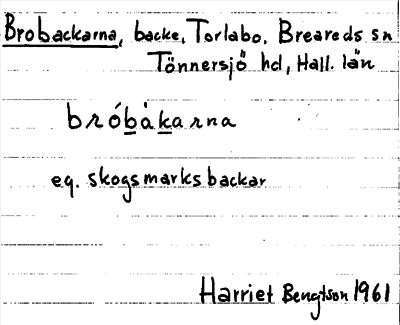 Brobackarna, backe, Torlabo, Breareds sn
Tönnersjö hd, Hall. län
bróbàkarna
eg. skogsmarksbackar
Harriet Bengtson 1961